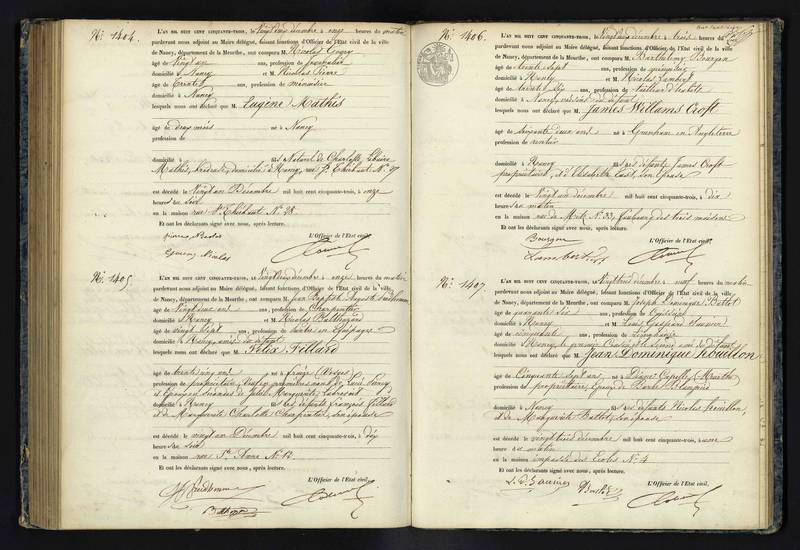 No. 1404.
L'AN MIL HUIT CENT CINQUANTE-TROIS, le Vingtdeux décembre à onze heures du matin
pardevant nous adjoint au Maire délégué, faisant fonctions d'Officier de l'Etat civil de la ville
de Nancy, département de la Meurthe, ont comparu M. Nicolas
âgé de Vingt un ans, profession de
domicilié à Nancy et M. Nicolas Pierre
âgé de trente ans, profession de menuisier
domicilié à Nancy
lesquels nous ont déclaré que M. Eugène Mathis
âgé de deux mois né à Nancy
profession de
domicilié à fils Naturel de Charlotte
Mathis, brodeuse, domiciliée à Nancy, rue St. Thiébaut No.
est décédé le Vingt un Décembre mil huit cent cinquante-trois, à onze
heures du soir
en la maison rue St. Thiébaut No. 28.
Et ont les déclarants signé avec nous, après lecture.
L'Officier de l'Etat civil,
No. 1405.
L'AN MIL HUIT CENT CINQUANTE-TROIS, le Vingtdeux décembre à onze heures du matin
pardevant nous adjoint au Maire délégué, faisant fonctions d'Officier de l'Etat civil de la ville
de Nancy, département de la Meurthe, ont comparu M. Jean Baptiste Auguste
âgé de Vingt neuf ans, profession de Charpentier
domicilié à Nancy et M. Nicolas Balthazard
âgé de vingt sept ans, profession de
domicilié à Nancy, amis du défunt
lesquels nous ont déclaré que M. Félix Fillard
âgé de trente cinq ans né à Fraize (Vosges)
profession de propriétaire, Veuf en premières noces de
et Epoux en secondes de Julie Marguerite
domicilié à Nancy fils des défunts François Fillard
et de Marguerite Charlotte Charpentier, son épouse
est décédé le vingt un Décembre mil huit cent cinquante-trois, à dix
heures du soir
en la maison rue Ste. Anne No. 13.
Et ont les déclarants signé avec nous, après lecture.
L'Officier de l'Etat civil,
No. 1406.
L'AN MIL HUIT CENT CINQUANTE-TROIS, le Vingtdeux décembre à trois heures du
pardevant nous adjoint au Maire délégué, faisant fonctions d'Officier de l'Etat civil de la ville
de Nancy, département de la Meurthe, ont comparu M. Barthélemy Bourgon
âgé de trente sept ans, profession de
domicilié à Nancy et M. Nicolas Lambert
âgé de trente six ans, profession de tailleur d'habits
domicilié à Nancy, voisins du défunt
lesquels nous ont déclaré que M. James Willams Croft
âgé de soixante deux ans né à Grantham en Angleterre
profession de rentier
domicilié à Nancy fils des défunts James Croft
propriétaire, et d'Elisabeth East, son épouse
est décédé le Vingt un décembre mil huit cent cinquante-trois, à dix
heures du matin
en la maison rue de Metz No. 33, faubourg des trois maisons
Et ont les déclarants signé avec nous, après lecture.
Bourgon L'Officier de l'Etat civil,
Lambert
No. 1407.
L'AN MIL HUIT CENT CINQUANTE-TROIS, le Vingttrois décembre à neuf heures du matin
pardevant nous adjoint au Maire délégué, faisant fonctions d'Officier de l'Etat civil de la ville
de Nancy, département de la Meurthe, ont comparu M. Joseph Dominique Bastot
âgé de quarante six ans, profession de
domicilié à Nancy et M. Louis Gaspard
âgé de cinquante ans, profession de
domicilié à Nancy, le premier Cousin et le second ami du défunt
lesquels nous ont déclaré que M. Jean Dominique Houillon
âgé de Cinquante sept ans né à
profession de propriétaire, Epoux de Barbe
domicilié à Nancy fils des défunts Nicolas Houillon,
et de Marguerite Bastot, son épouse
est décédé le vingt trois décembre mil huit cent cinquante-trois, à une
heure du matin
en la maison impasse des Ecoles No. 4
Et ont les déclarants signé avec nous, après lecture.
L'Officier de l'Etat civil,